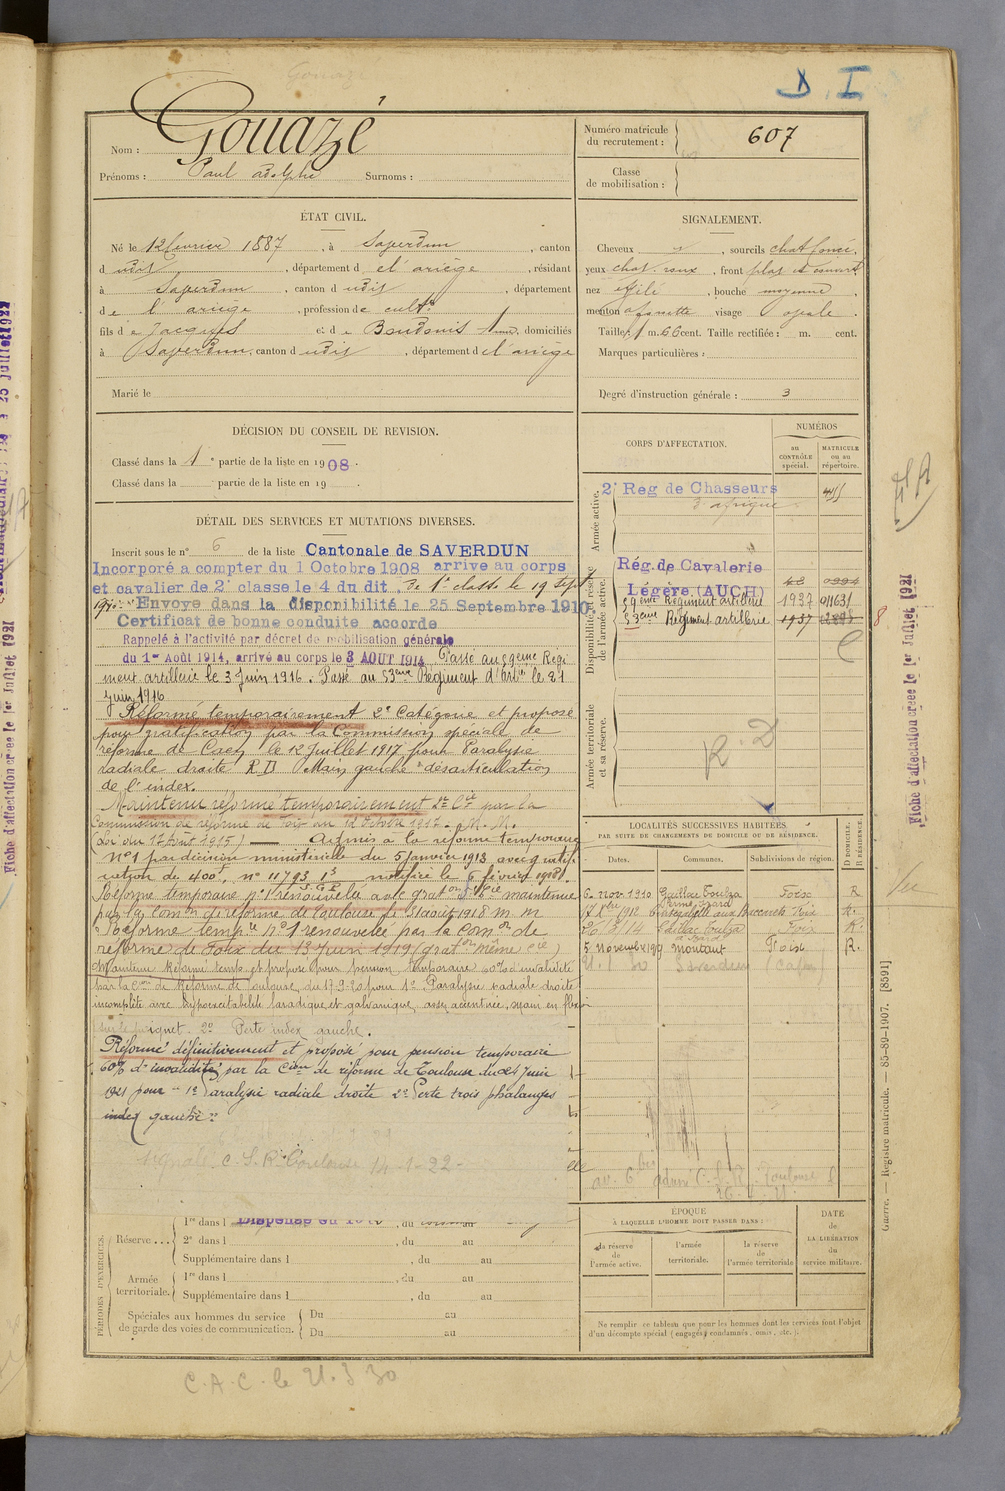 D. I
Nom : Gouazé
Prénoms : Paul Adolphe Surnoms :
Numéro matricule du recrutement : 607
Classe de mobilisation :
ÉTAT CIVIL.
Né le 12 février 1887, à Saverdun, canton
d udit, département d e l'ariège, résidant
à Saverdun, canton d udit, département
d e l'ariège, profession d e cultr
fils d e Jacques et d e Baudonis Anna, domiciliés
à Saverdun, canton d udit, département d e l'ariège
Marié le
SIGNALEMENT.
Cheveux , sourcils chat foncé,
yeux chat. roux, front plat et couvert
nez effilé, bouche moyenne,
menton à fossette visage ovale.
Taille : 1 m. 66 cent. Taille rectifiée : m. cent.
Marques particulières :
Degré d'instruction générale : 3
DÉCISION DU CONSEIL DE REVISION.
Classé dans la 1e partie de la liste en 1908.
Classé dans la partie de la liste en 19 .
DÉTAIL DES SERVICES ET MUTATIONS DIVERSES.
Inscrit sous le n° 6 de la liste Cantonale de SAVERDUN
Incorporé a compter du 1 Octobre 1908 arrivé au corps
et cavalier de 2e classe le 4 du dit. De 1e classe le 19 Sept
1910. Envoye dans la disponibilité le 25 Septembre 1910.
Certificat de bonne conduite accorde
Rappelé à l'activité par décret de mobilisation générale
du 1er Août 1914, arrivé au corps le 3 AOUT 1914 Passé au 59eme Régi
ment artillerie le 3 Juin 1916. Passé au 53eme Régiment d'artie le 21
Juin 1916
Réformé temporairement 2e Catégorie et proposé
pour gratification par la Commission spéciale de
réforme de Caen le 12 Juillet 1917 pour Paralysie
radiale droite R D Main gauche désarticulation
de l'index.
Maintenu réformé temporairement 2e Cie par la
Commission de réforme de Foix du 12 Octobre 1917. M. M.
(Loi du 17 Août 1915) Admis à la réforme temporaire
N°1 par décision ministérielle du 5 Janvier 1918 avec gratifi
cation de 400f, n° 11793 notifiée le 6 février 1918.
Réforme temporaire n°1 renouvelée avec graton 5e Cie maintenue
par la Comon de réforme de Toulouse du 31 août 1918 m. m.
Réforme tempre N°1 renouvelée par la Comon de
réforme de Foix du 13 Juin 1919 (graton même cie)
Maintenu Réformé temp. et proposé pour pension temporaire 60% d'invalidité
par la Con de Réforme de Toulouse du 17-3-20 pour 1° Paralysie radiale droite
incomplète avec hypoexcitabilité faradique et galvanique assez accentuée, main en flexion
sur le poignet. 2° Perte index gauche.
Réformé définitivement et proposé pour pension temporaire
60% d'invalidité par la Cion de réforme de Toulouse du 24 Juin
1921 pour 1° Paralysie radiale droite 2° Perte trois phalanges
index gauche
C. S. R. Toulouse 14-1-22
CORPS D'AFFECTATION.
NUMÉROS
au CONTRÔLE spécial.
MATRICULE ou au répertoire.
Armée active.
2e Reg de Chasseurs
d'afrique
Disponibilité et réserve de l'armée active.
Rég. de Cavalerie
Légère (AUCH) 48
59eme Régiment artillerie 1937 011631
53eme Régiment artillerie 1937
8
Armée territoriale et sa réserve.
R. D
LOCALITÉS SUCCESSIVES HABITÉES
PAR SUITE DE CHANGEMENTS DE DOMICILE OU DE RÉSIDENCE.
Dates. Communes. Subdivisions de région. D DOMICILE. R RÉSIDENCE.
6 nov. 1910 Gaillac Toulza Foix R
1912 Foix R.
14 Gaillac Toulza Foix R.
5 Novembre 1919 Montaut Foix R.
21. 3 30 Saverdun
C. S. R. Toulouse
PÉRIODES D'EXERCICES.
Réserve... 1re dans l Dispensé en , du au
2e dans l , du au
Supplémentaire dans l , du au
Armée territoriale. 1re dans l , du au
Supplémentaire dans l , du au
Spéciales aux hommes du service de garde des voies de communication. Du au
Du au
ÉPOQUE
À LAQUELLE L'HOMME DOIT PASSER DANS :
la réserve de l'armée active.
l'armée territoriale.
la réserve de l'armée territoriale
DATE de LA LIBÉRATION du service militaire.
Ne remplir ce tableau que pour les hommes dont les services font l'objet
d'un décompte spécial (engagés, condamnés, omis, etc.).
C.A.C. le 21. 3 30
Guerre. — Registre matricule. — 85-89-1907. [8591]
Fiche d'affectation créée le 1er Juillet 1921
Fiche d'affectation créée le 1er Juillet 1921
Vu